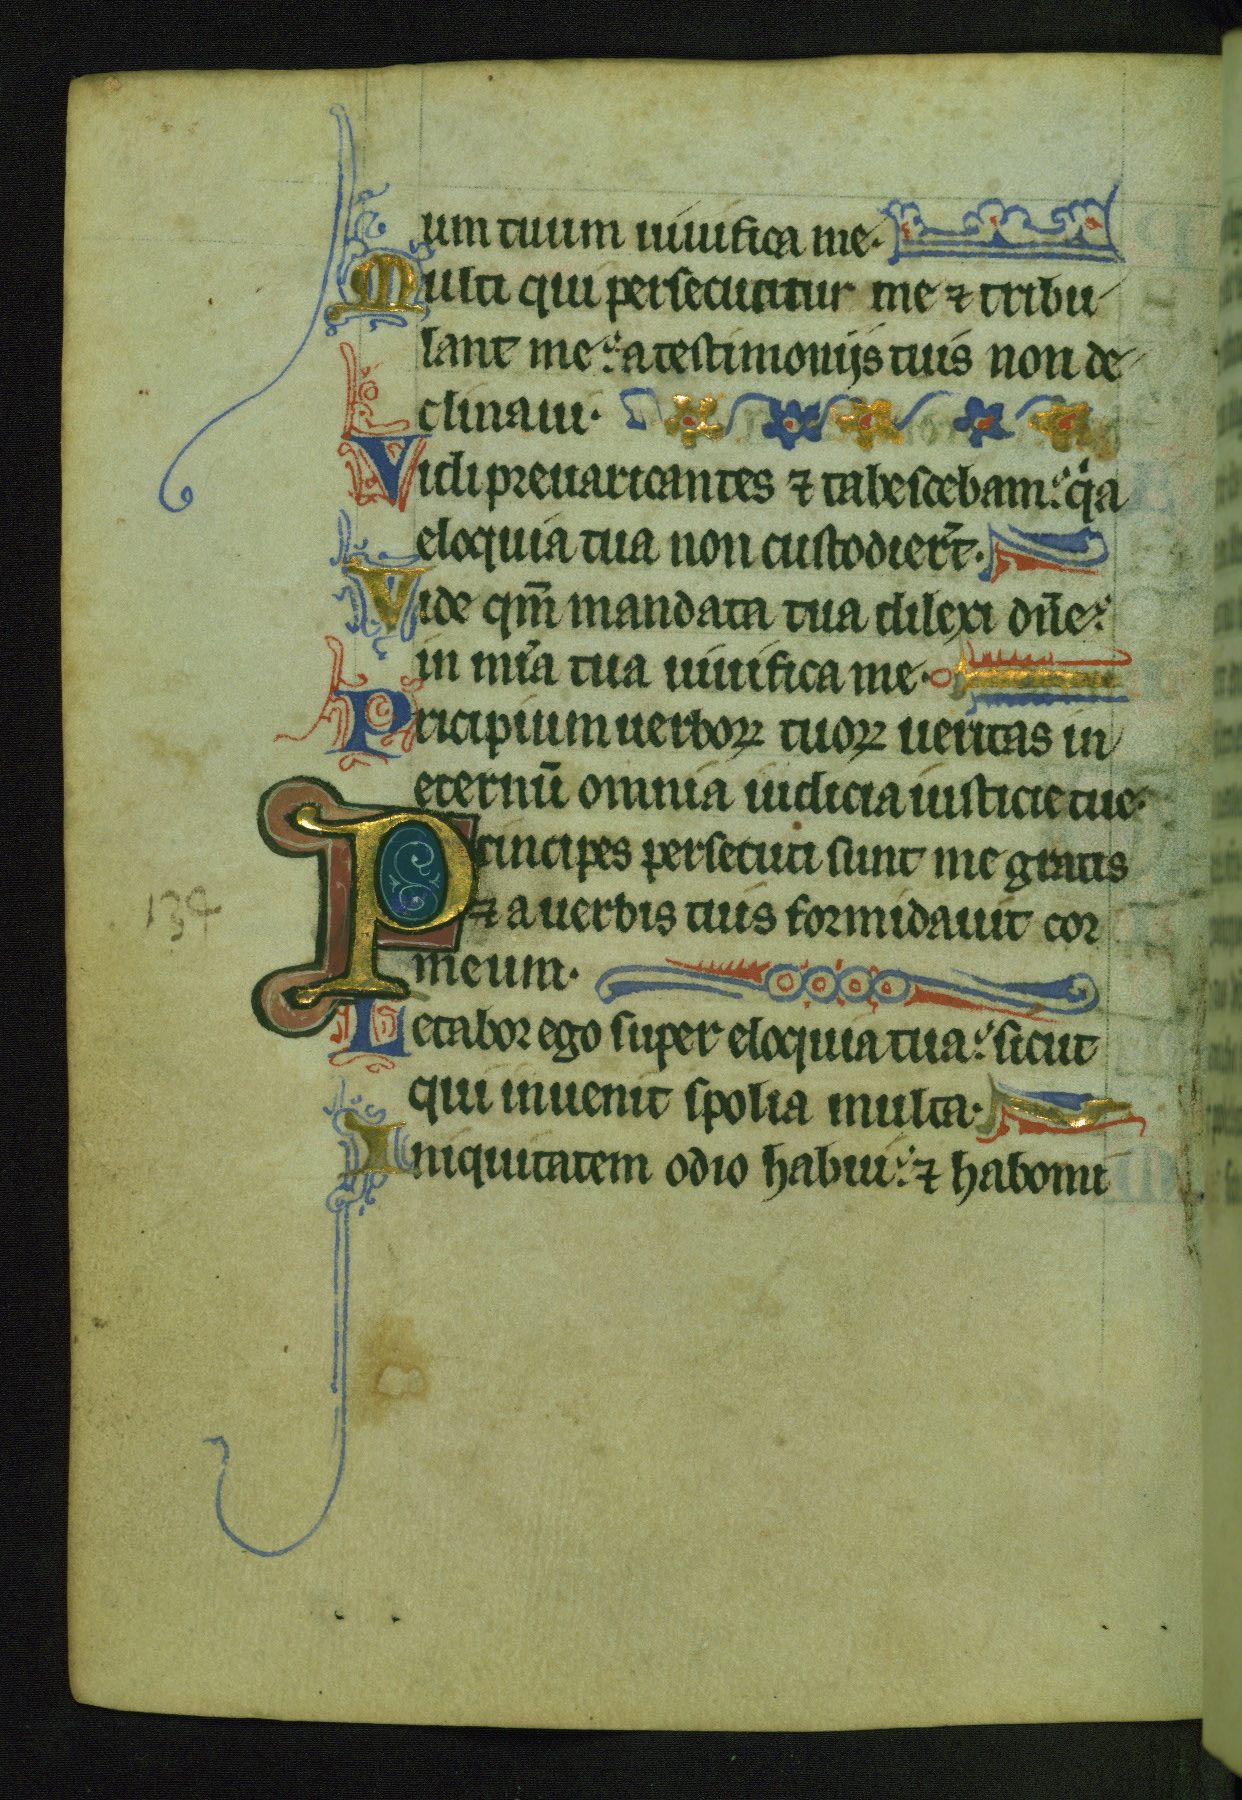 um tuum uiuifica me.
Multi qui persecutitur me ⁊ tribu
lant me: a testimonijs tuis non de
clinaui.
Vidi preuaricantes ⁊ tabescebam: q̇a
eloquia tua non custodier̄t.
Vide qm̄ mandata tua dilexi dn̄e:
in mīa tua uiuifica me.
Pricipium uerboꝝ tuoꝝ ueritas in
eternū omnia iudicia iusticie tue.
Principes persecuti sunt me gratis
⁊ a uerbis tuis formidauit cor
meum.
Letabor ego super eloquia tua: sicut
qui inuenit spolia multa.
Iniquitatem odio habui: ⁊ habomi